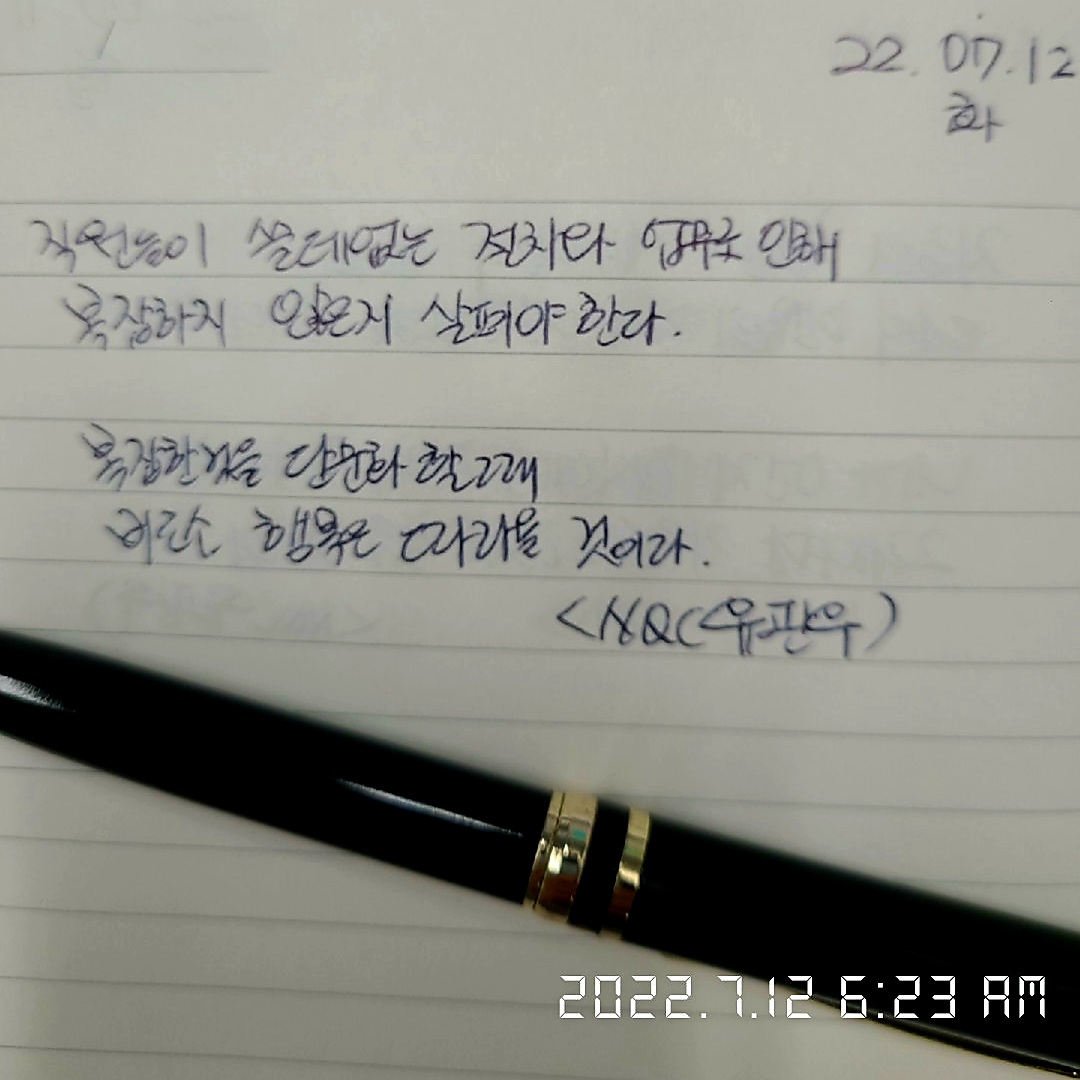 22. 07. 12
화
직원들이 쓸데없는 절차와 업무로 인해
복잡하지 않은지 살펴야 한다.
복잡한것을 단순화 할 그때
비로소 행복은 따라올 것이라.
<NQ(유판우)
2022.7.12 6:23 AM